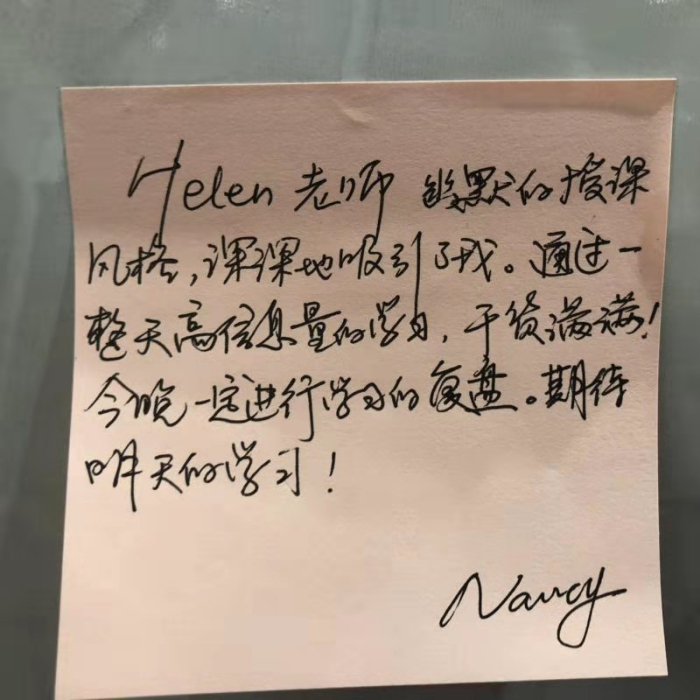 Helen 老师 幽默的授课
风格,深深地吸引了我。通过一
整天高信息量的学习,干货满满!
今晚一定进行学习的复盘。期待
明天的学习!
Nancy